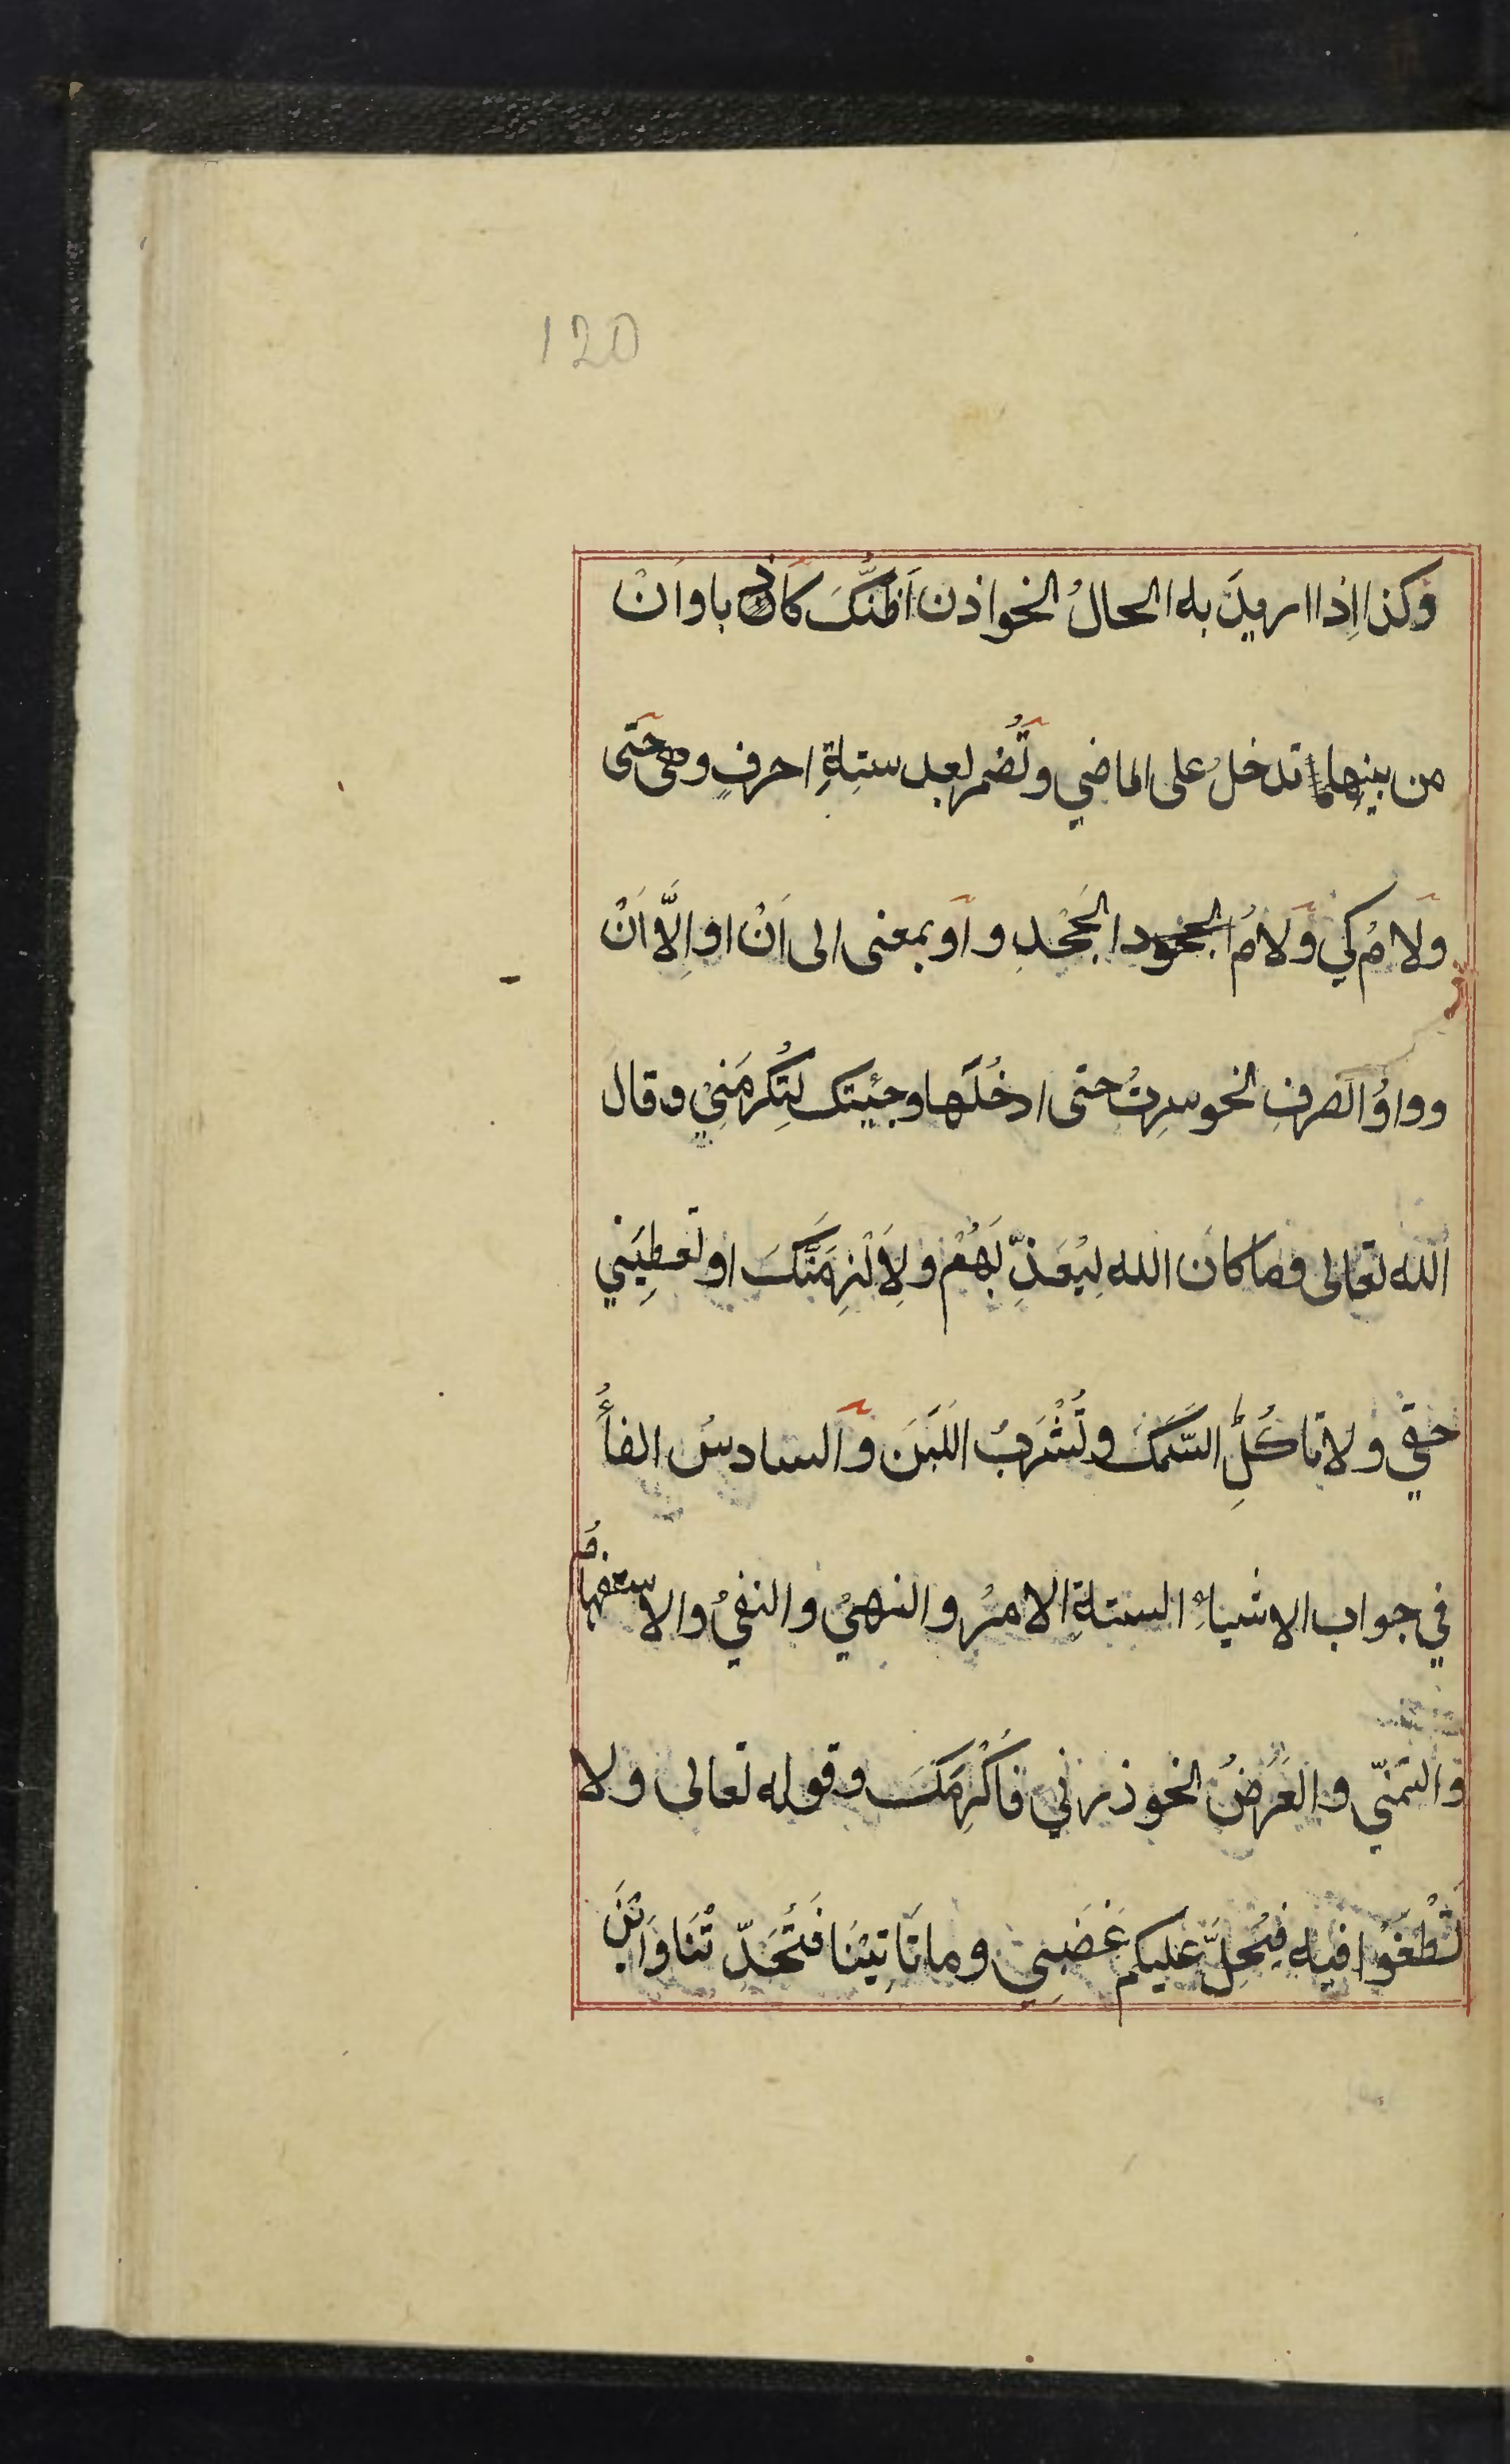 120
وكذا اِذا اريدَ به الحالُ نحو اذن اَظُنُّكَ كاذبا واَنْ
من بينها تدخلُ على الماضي وتُضمر بعد ستةِ احرفٍ وهى حتى
ولامُ كي ولامُ الجحود الجَحْدِ واَو بمعنى الى اَنْ او اِلَّا اَنْ
وواوُ الصرفِ نحو سرتُ حتى ادخُلَها وجئيتك لِتُكرمَنِيْ وقال
الله تعالى وما كان الله لِيُعَذِّبَهُمْ ولِاَلْزِمَنَّكَ او تعطِيَني
حقي ولا تاكُلِ السَّمَكَ وتَشْرَبُ اللَّبَنَ والسادسُ الفاُ
في جواب الاشياءِ الستةِ الامرُ والنهيُ والنفيُ والاستفهامُ
والتمنّي والعَرْضُ نحو ذرني فاُكْرِمَكَ وقوله تعالى ولا
تَطْغَوْا فيه فيَحِلَّ عليكم غَضَبِي وما تَاتِيْنَا فَتُحَدِّثَنَا وَاَيْنَ